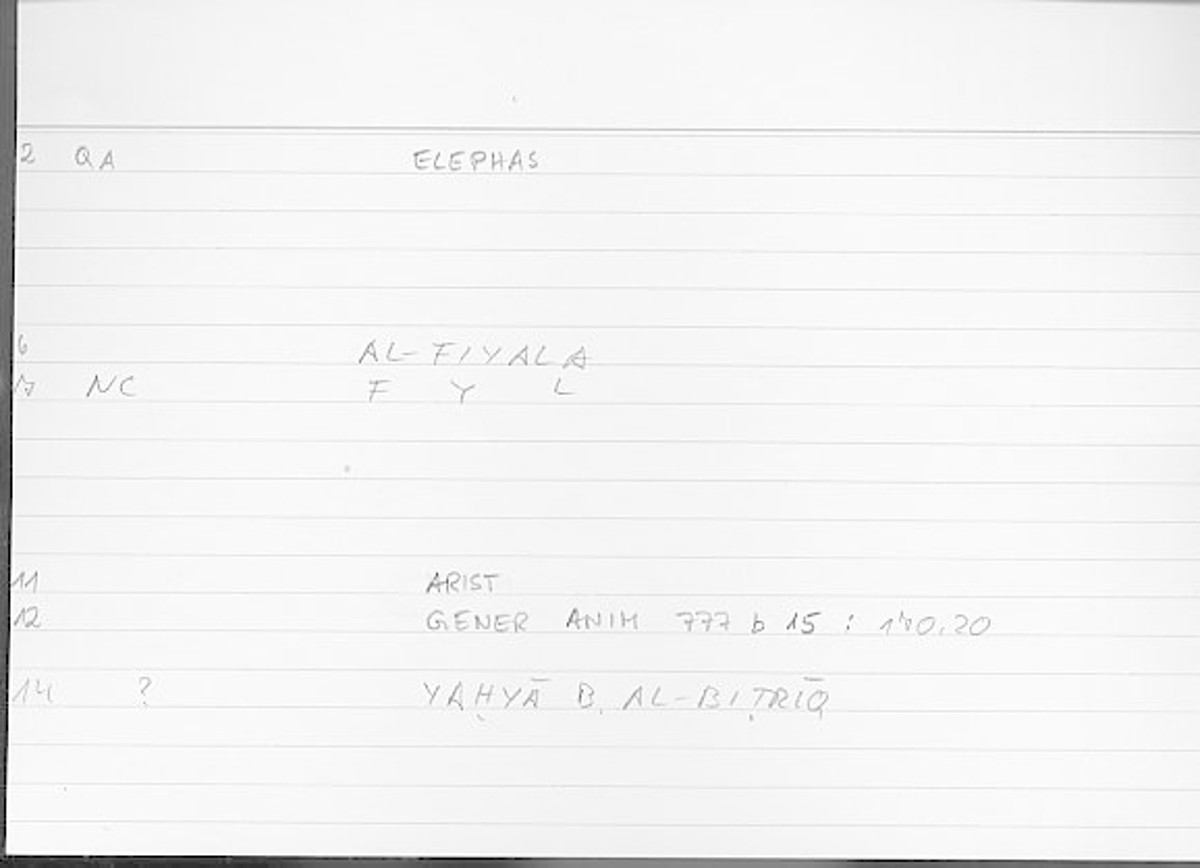 2 QA ELEPHAS
6 AL-FIYALA
7 NC F Y L
11 ARIST
12 GENER ANIM 777 b 15 :
14 ? YAḤYĀ B. AL-BIṬRĪQ